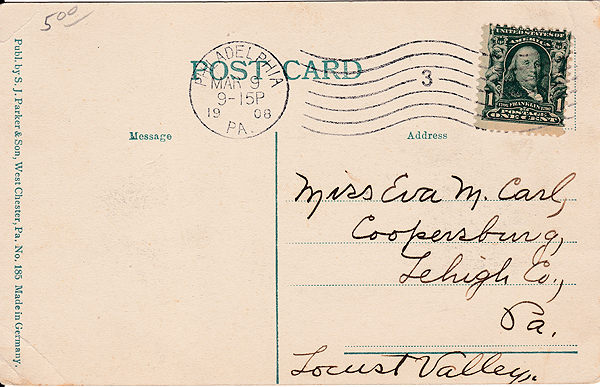 5 00
Publ. by S. J. Parker & Son, West Chester, Pa. No. 185 Made in Germany.
POST CARD
PHILADELPHIA
MAR 9
9-15P
1908
PA.
3
UNITED STATES OF
AMERICA
1 FRANKLIN 1
POSTAGE
ONE CENT
Message
Address
Miss Eva M. Carl,
Coopersburg,
Lehigh Co.,
Pa.
Locust Valley.